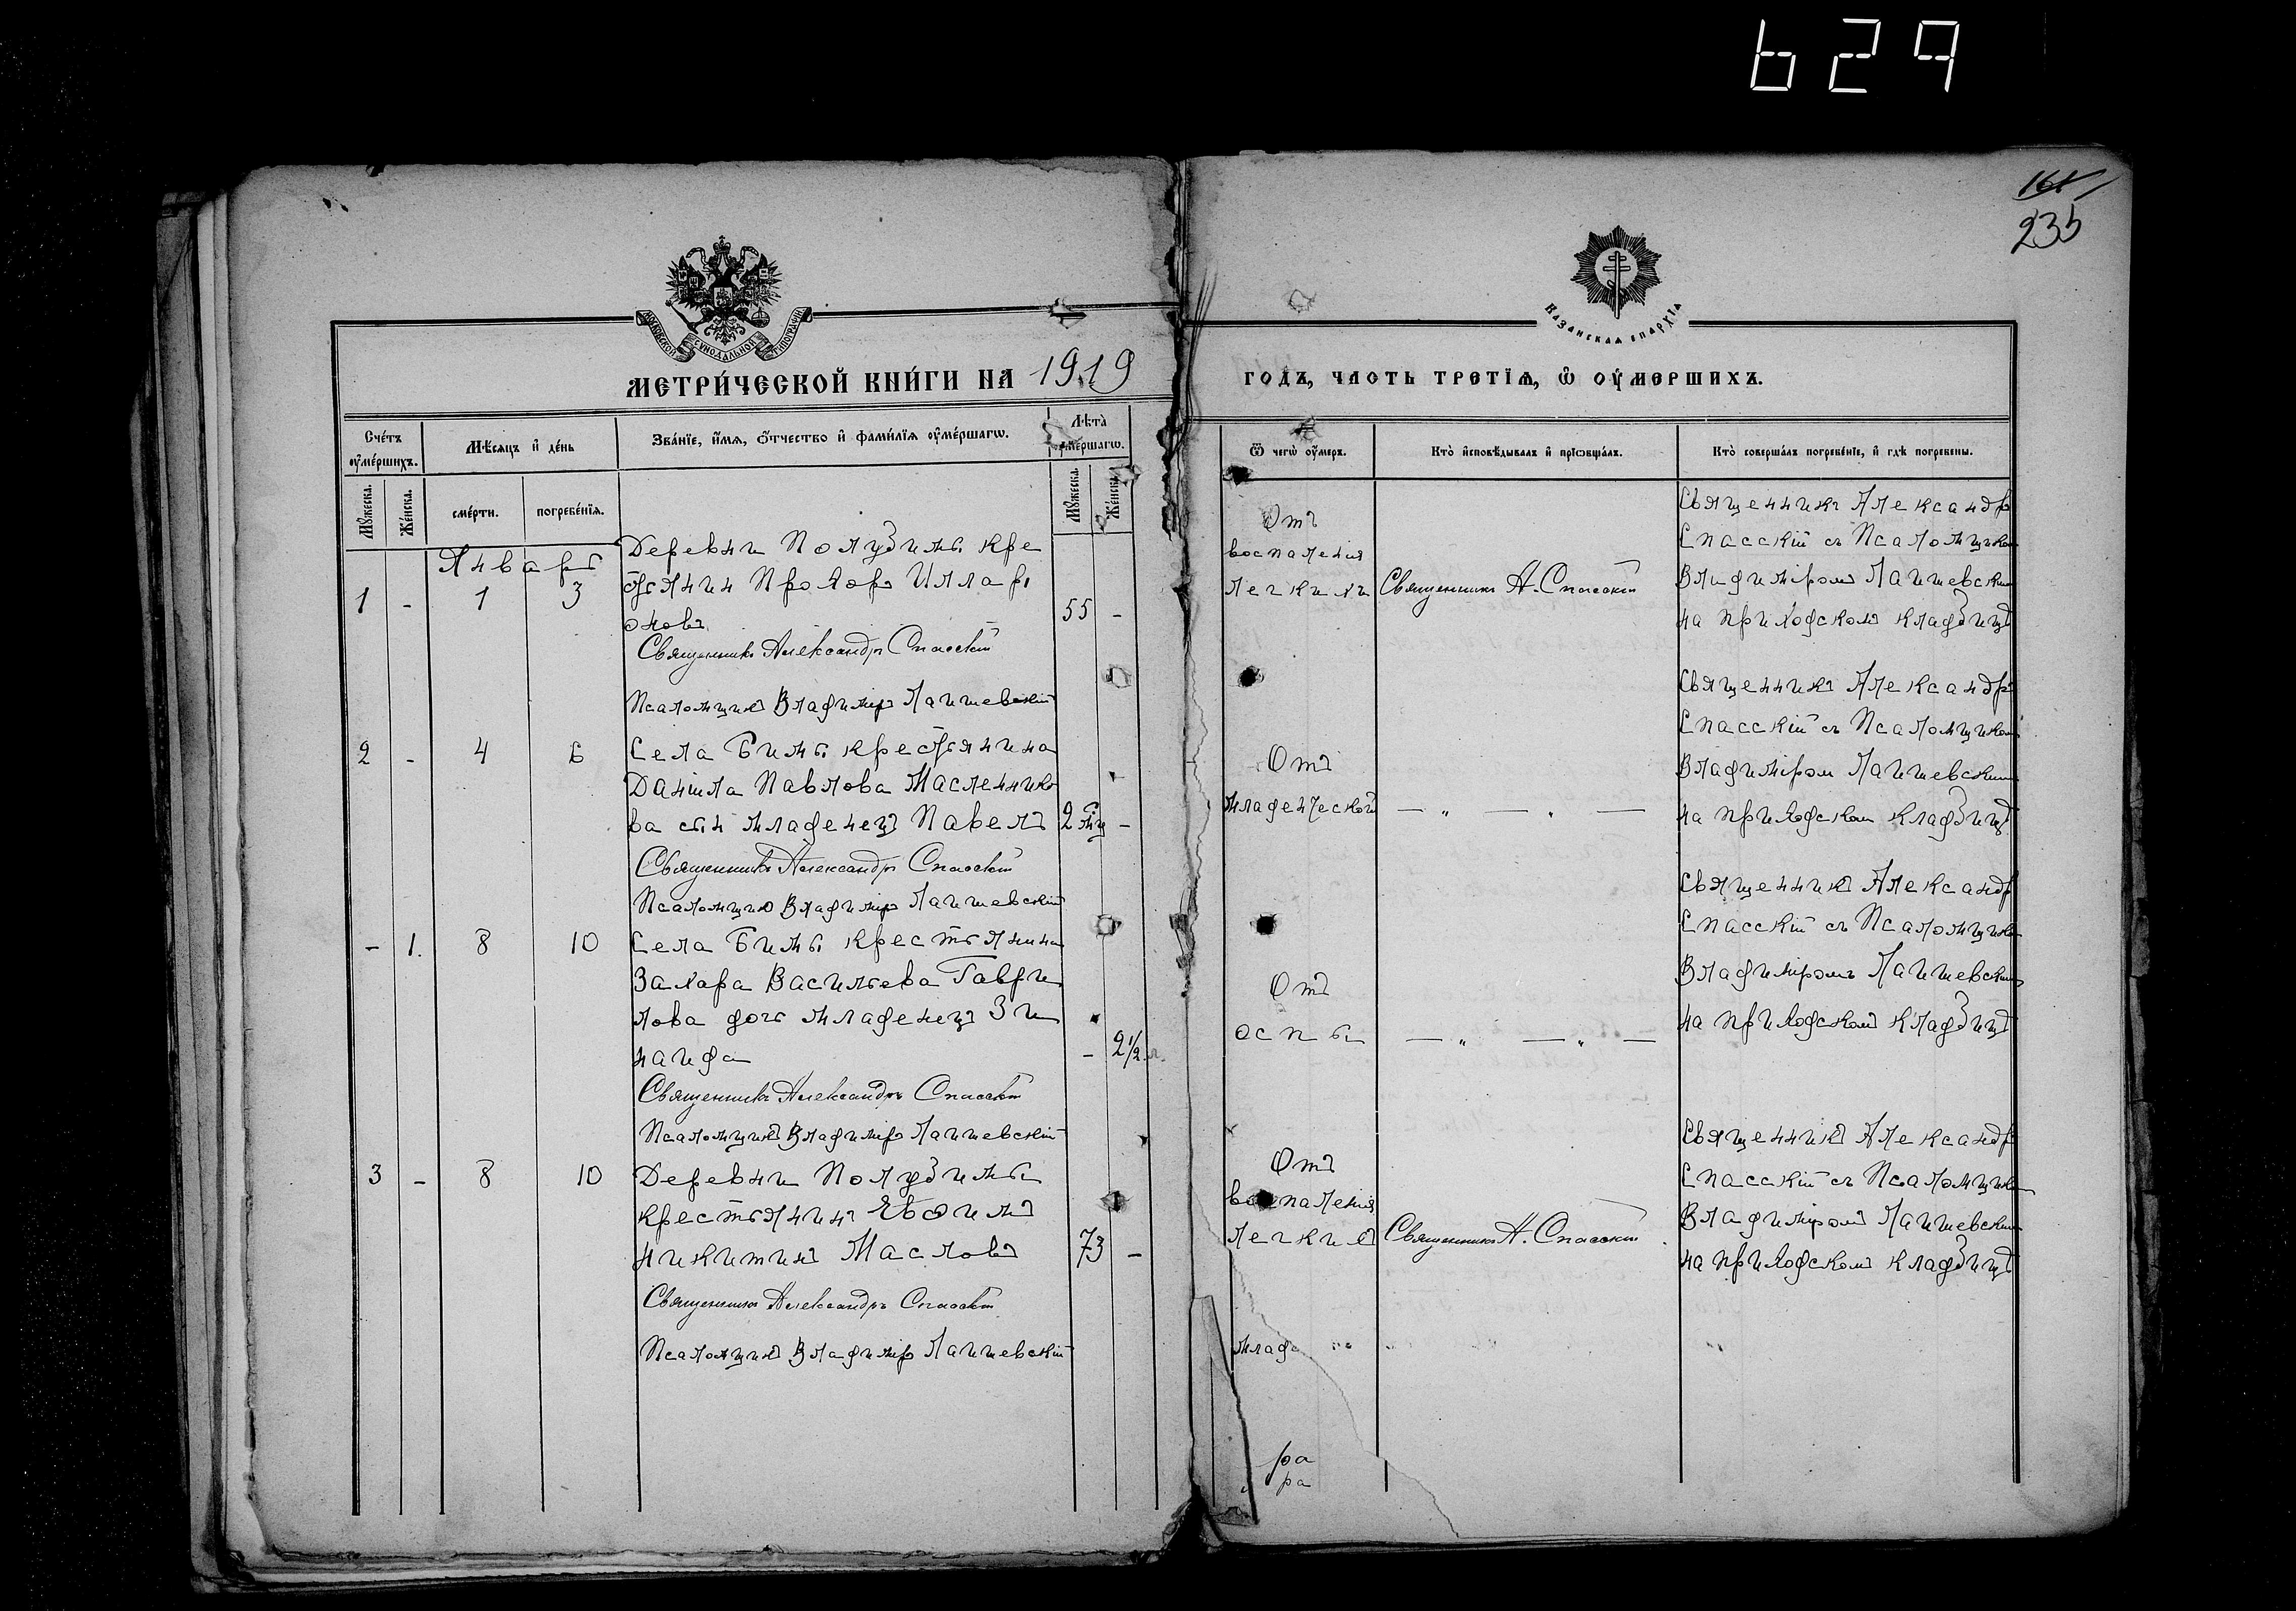 629
161
235
МОСКОВСКОЙ СѴНОДАЛЬНОЙ ТИПОГРАФІИ
КАЗАНСКАЯ ЕПАРХІЯ
МЕТРИ́ЧЕСКОЙ КНИ́ГИ НА 1919 ГОДЪ, ЧАСТЬ ТРЕТІѦ, Ѡ ОУ҆МЕРШИХЪ.
Сче́тъ оу҆ме́ршихъ.
Мꙋ́жеска.
Же́нска.
Мѣ́сѧцъ и҆ де́нь
сме́рти.
погребе́нїѧ.
Зва́нїе, и҆́мѧ, ѻ҆́тчество и҆ фами́лїѧ оу҆ме́ршагѡ.
Лѣ́та оу҆ме́ршагѡ.
Мꙋ́жеска.
Же́нска.
Ѿ чегѡ̀ оу҆́меръ.
Кто̀ и҆сповѣ́дывалъ и҆ прїѡбща́лъ.
Кто̀ соверша́лъ погребе́нїе, и҆ гдѣ̀ погребены.
Январь
1 - 1 3
Деревни Полузимы кре
стьянин Прохоръ Иллар
оновъ
55 -
Священникъ Александръ Спасскій
Псаломщикъ Владиміръ Лаишевскій
Отъ
воспаления
легкихъ
Священникъ А. Спасскій
Священникъ Александръ
Спасскій съ Псаломщиком
Владиміромъ Лаишевским
на приходскомъ кладбищѣ
2 - 4 6
Села Бимы крестьянина
Даніила Павлова Масленнико
ва сын младенецъ Павелъ
2 мц -
Священникъ Александръ Спасскій
Псаломщикъ Владиміръ Лаишевскій
Отъ
младенческой
— „ — „ —
Священникъ Александръ
Спасскій съ Псаломщиком
Владиміром Лаишевским
на приходском кладбищѣ
- 1. 8 10
Села Бимы крестьянина
Захара Васильева Гаври
лова дочь младенецъ Зи
наида
- 2 1/2 л.
Священникъ Александръ Спасскій
Псаломщикъ Владиміръ Лаишевскій
Отъ
оспы
— „ — „ —
Священникъ Александръ
Спасскій съ Псаломщиком
Владиміромъ Лаишевским
на приходскомъ кладбищѣ
3 - 8 10
Деревни Полузимы
крестьянинъ Евѳимъ
Никитинъ Масловъ
73 -
Священникъ Александръ Спасскій
Псаломщикъ Владиміръ Лаишевскій
Отъ
воспаления
легкихъ
Священникъ А. Спасскій
Священникъ Александръ
Спасскій съ Псаломщиком
Владиміромъ Лаишевским
на приходскомъ кладбищѣ
млад
ра
ра